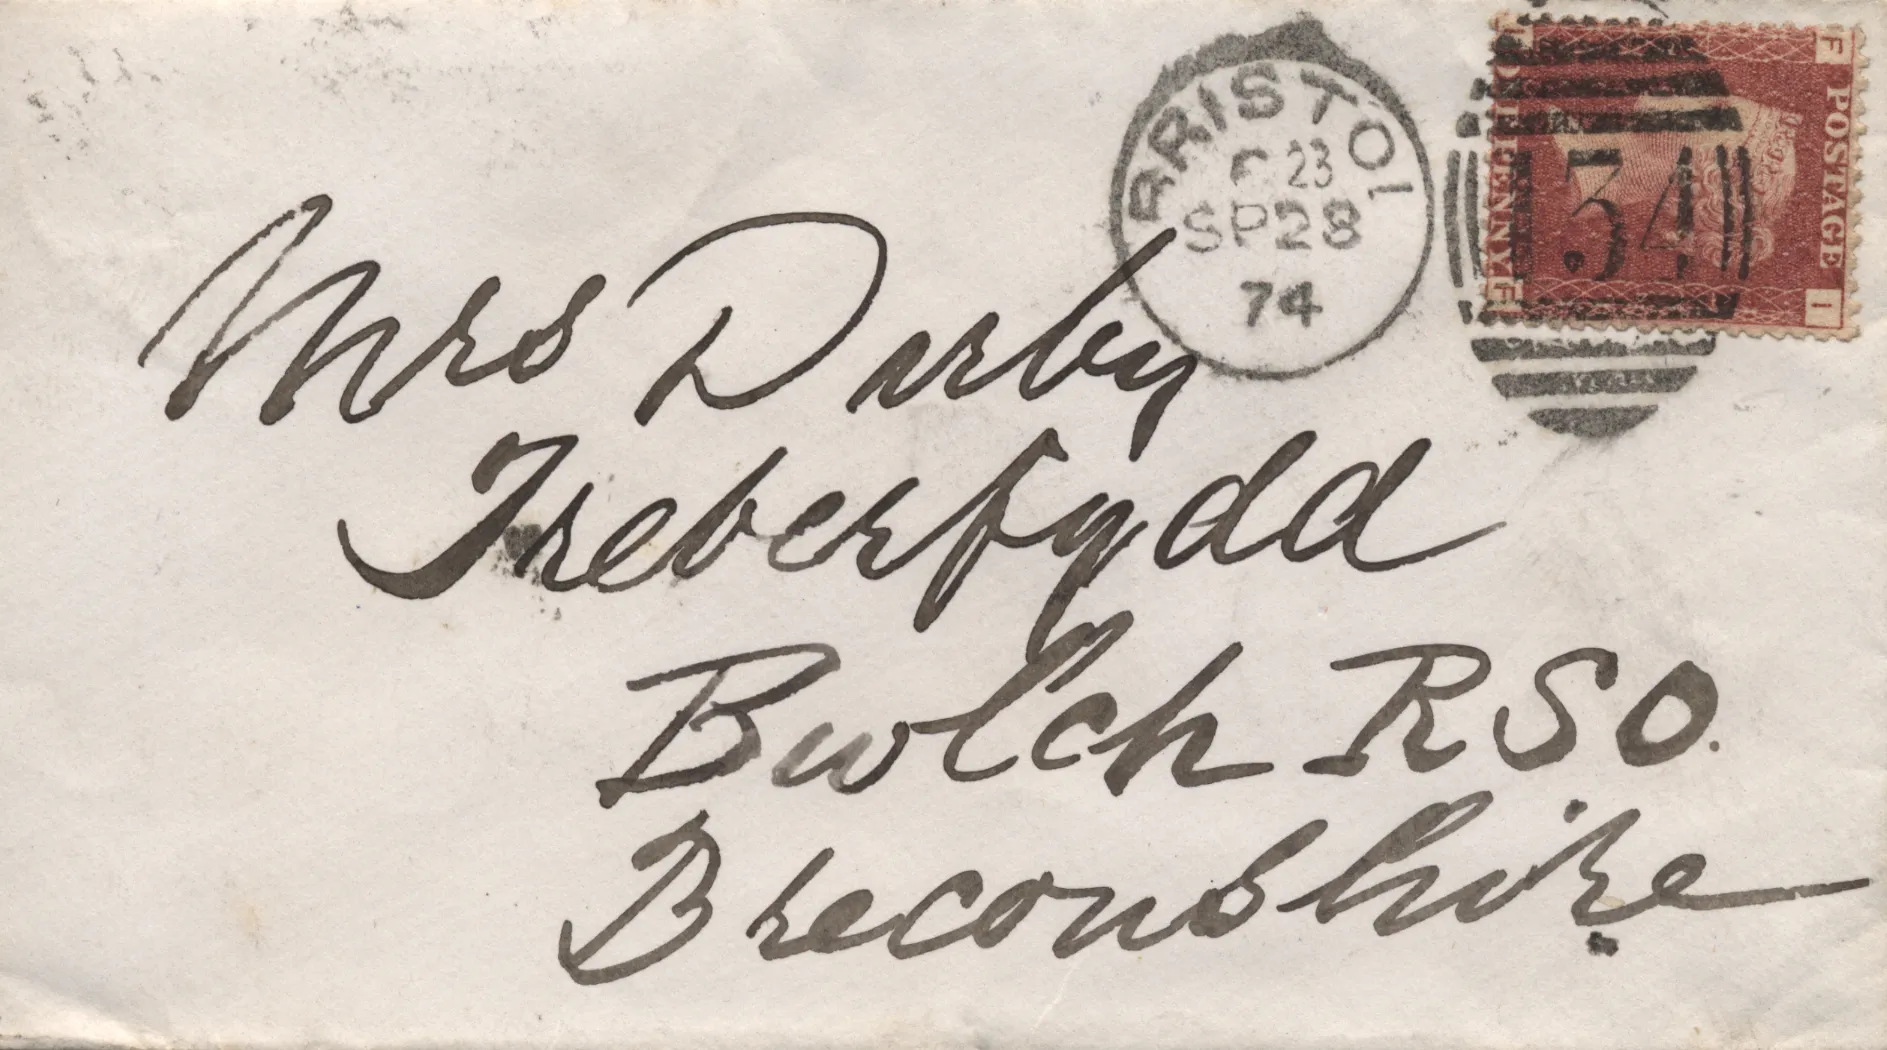 BRISTOL
F 23
SP 28
74
134
POSTAGE
ONE PENNY
F
I
Mrs Darby
Treberfydd
Bwlch RSO.
Breconshire